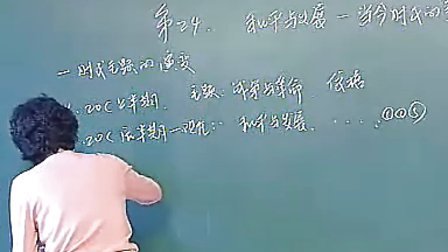 第24. 和平与发展－当今时代的
一时代主题的演变
1. 20C上半期. 主题: 战争与革命.
2. 20C后半期－现在: 和平与发展. ①②⑤